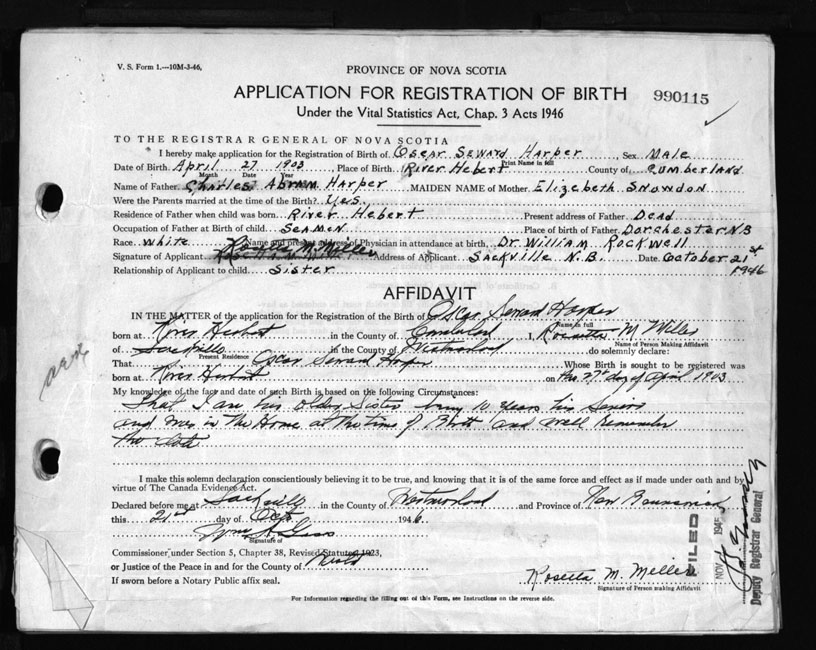 V. S. Form 1.—10M-3-46,
PROVINCE OF NOVA SCOTIA
APPLICATION FOR REGISTRATION OF BIRTH
990115
Under the Vital Statistics Act, Chap. 3 Acts 1946
TO THE REGISTRAR GENERAL OF NOVA SCOTIA
I hereby make application for the Registration of Birth of Oscar Seward Harper Sex Male
Print Name in full
Date of Birth April 27 1903 Place of Birth River Hebert County of Cumberland
Month Date Year
Name of Father Charles Abram Harper MAIDEN NAME of Mother Elizebeth Snowdon
Were the Parents married at the time of the Birth? Yes.
Residence of Father when child was born River Hebert Present address of Father Dead
Occupation of Father at Birth of child Seamen Place of birth of Father Dorchester N.B
Race White Name and present address of Physician in attendance at birth, Dr. William Rockwell
Signature of Applicant M. Miller Address of Applicant Sackville N.B. Date October 21st
1946
Relationship of Applicant to child Sister
AFFIDAVIT
IN THE MATTER of the application for the Registration of the Birth of Oscar Seward Harper
Name in full
born at River Herbert in the County of Cumberland I, Rosetta M Miller
Name of Person Making Affidavit
of Sackville in the County of Westmorland do solemnly declare:
Present Residence
That Oscar Seward Harper Whose Birth is sought to be registered was
born at River Herbert on the 27th day of April 1903
My knowledge of the fact and date of such Birth is based on the following Circumstances:
That I am his older Sister being 10 years his Senior
and was in The Home at the time of Birth and well remember
the date
I make this solemn declaration conscientiously believing it to be true, and knowing that it is of the same force and effect as if made under oath and by
virtue of The Canada Evidence Act.
Declared before me at Sackville in the County of Westmorland and Province of New Brunswick
this 21st day of Oct 1946.
Signature of
Commissioner under Section 5, Chapter 38, Revised Statutes 1923,
or Justice of the Peace in and for the County of
If sworn before a Notary Public affix seal.
Rosetta M. Miller
Signature of Person making Affidavit
For Information regarding the filling out of this Form, see Instructions on the reverse side.
FILED
NOV 1946
Deputy Registrar General